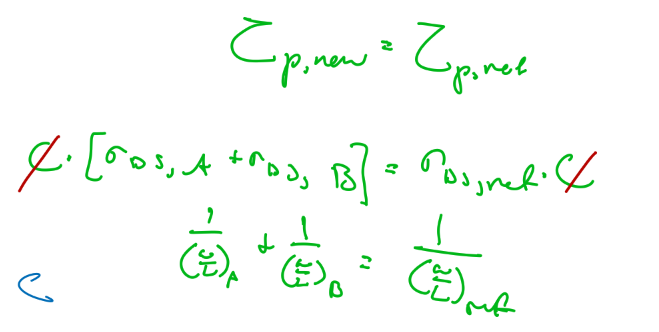 τp,new = τp,ref
C · [rDS,A + rDS,B] = rDS,ref · C
1/(W/L)A + 1/(W/L)B = 1/(W/L)ref